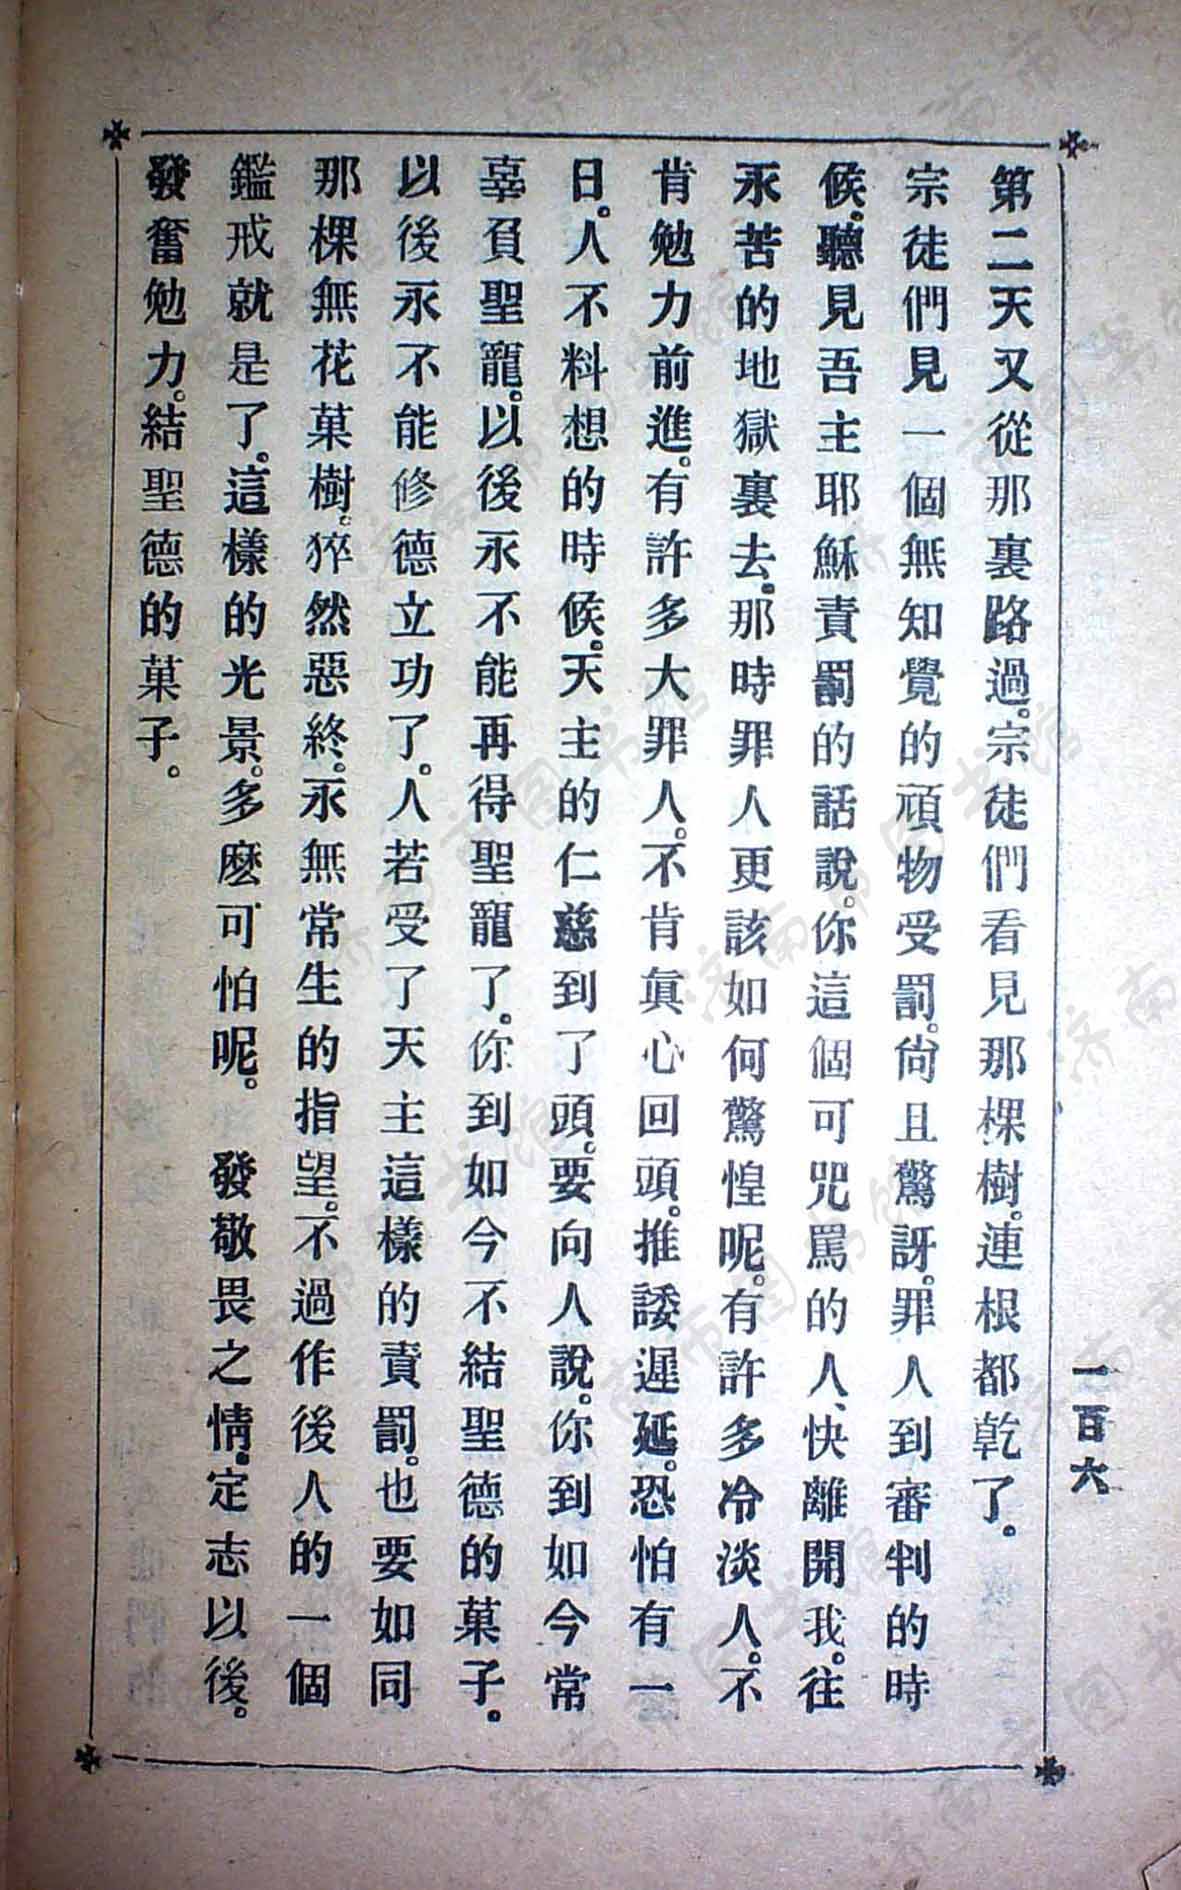 第二天又從那裏路過。宗徒們看見那棵樹。連根都乾了。
宗徒們見一個無知覺的頑物受罰。尙且驚訝。罪人到審判的時
候。聽見吾主耶穌責罰的話說。你這個可咒罵的人、快離開我。往
永苦的地獄裏去。那時罪人更該如何驚惶呢。有許多冷淡人。不
肯勉力前進。有許多大罪人。不肯眞心回頭。推諉遲延。恐怕有一
日。人不料想的時候。天主的仁慈到了頭。要向人說。你到如今常
辜負聖寵。以後永不能再得聖寵了。你到如今不結聖德的菓子。
以後永不能修德立功了。人若受了天主這樣的責罰。也要如同
那棵無花菓樹。猝然惡終。永無常生的指望。不過作後人的一個
鑑戒就是了。這樣的光景。多麽可怕呢。　發敬畏之情。定志以後。
發奮勉力。結聖德的菓子。
一百六
济南市图书馆